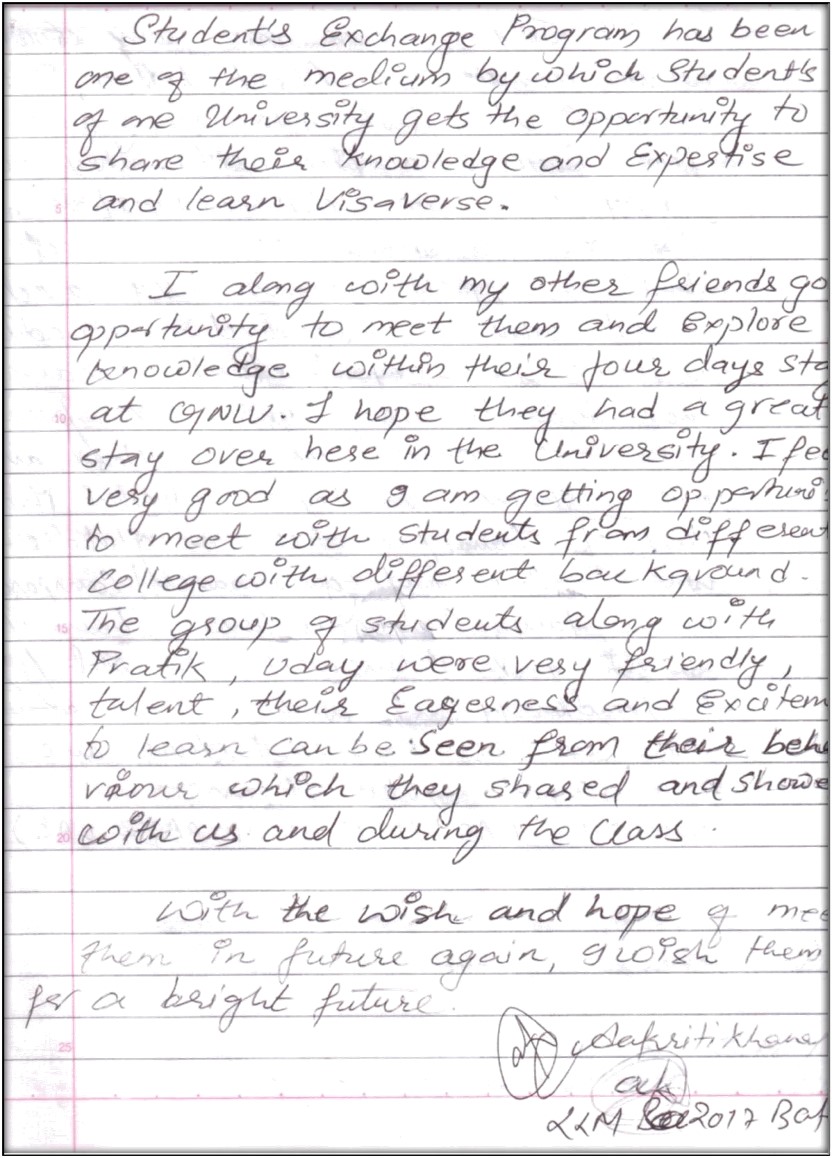 Student's Exchange Program has been
one of the medium by which Student's
of one University gets the opportunity to
share their knowledge and Expertise
5
and learn Visaverse.
I along with my other friends go
opportunity to meet them and Explore
knowledge within their four days sta
10
at GNLU. I hope they had a great
stay over here in the University. I fee
very good as I am getting opportuni
to meet with students from different
College with different background.
15
The group of students along with
Pratik, Uday were very friendly,
talent, their Eagerness and Excitem
to learn can be seen from their beha
viour which they shared and showe
20
with us and during the Class.
With the wish and hope of mee
them in future again, I wish them
for a bright future.
25
Aakriti Khana
LLM 2017 Bat